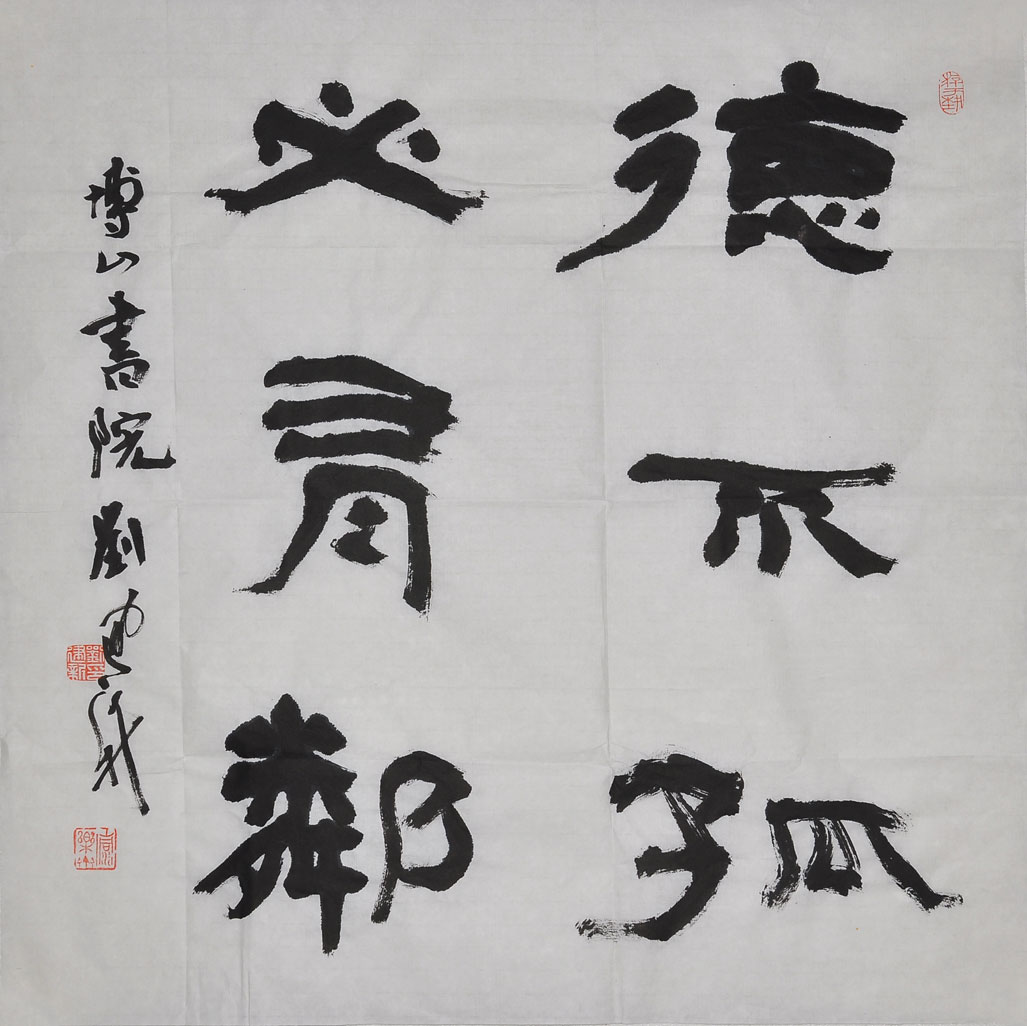 德不孤
必有鄰
博山書院劉建新